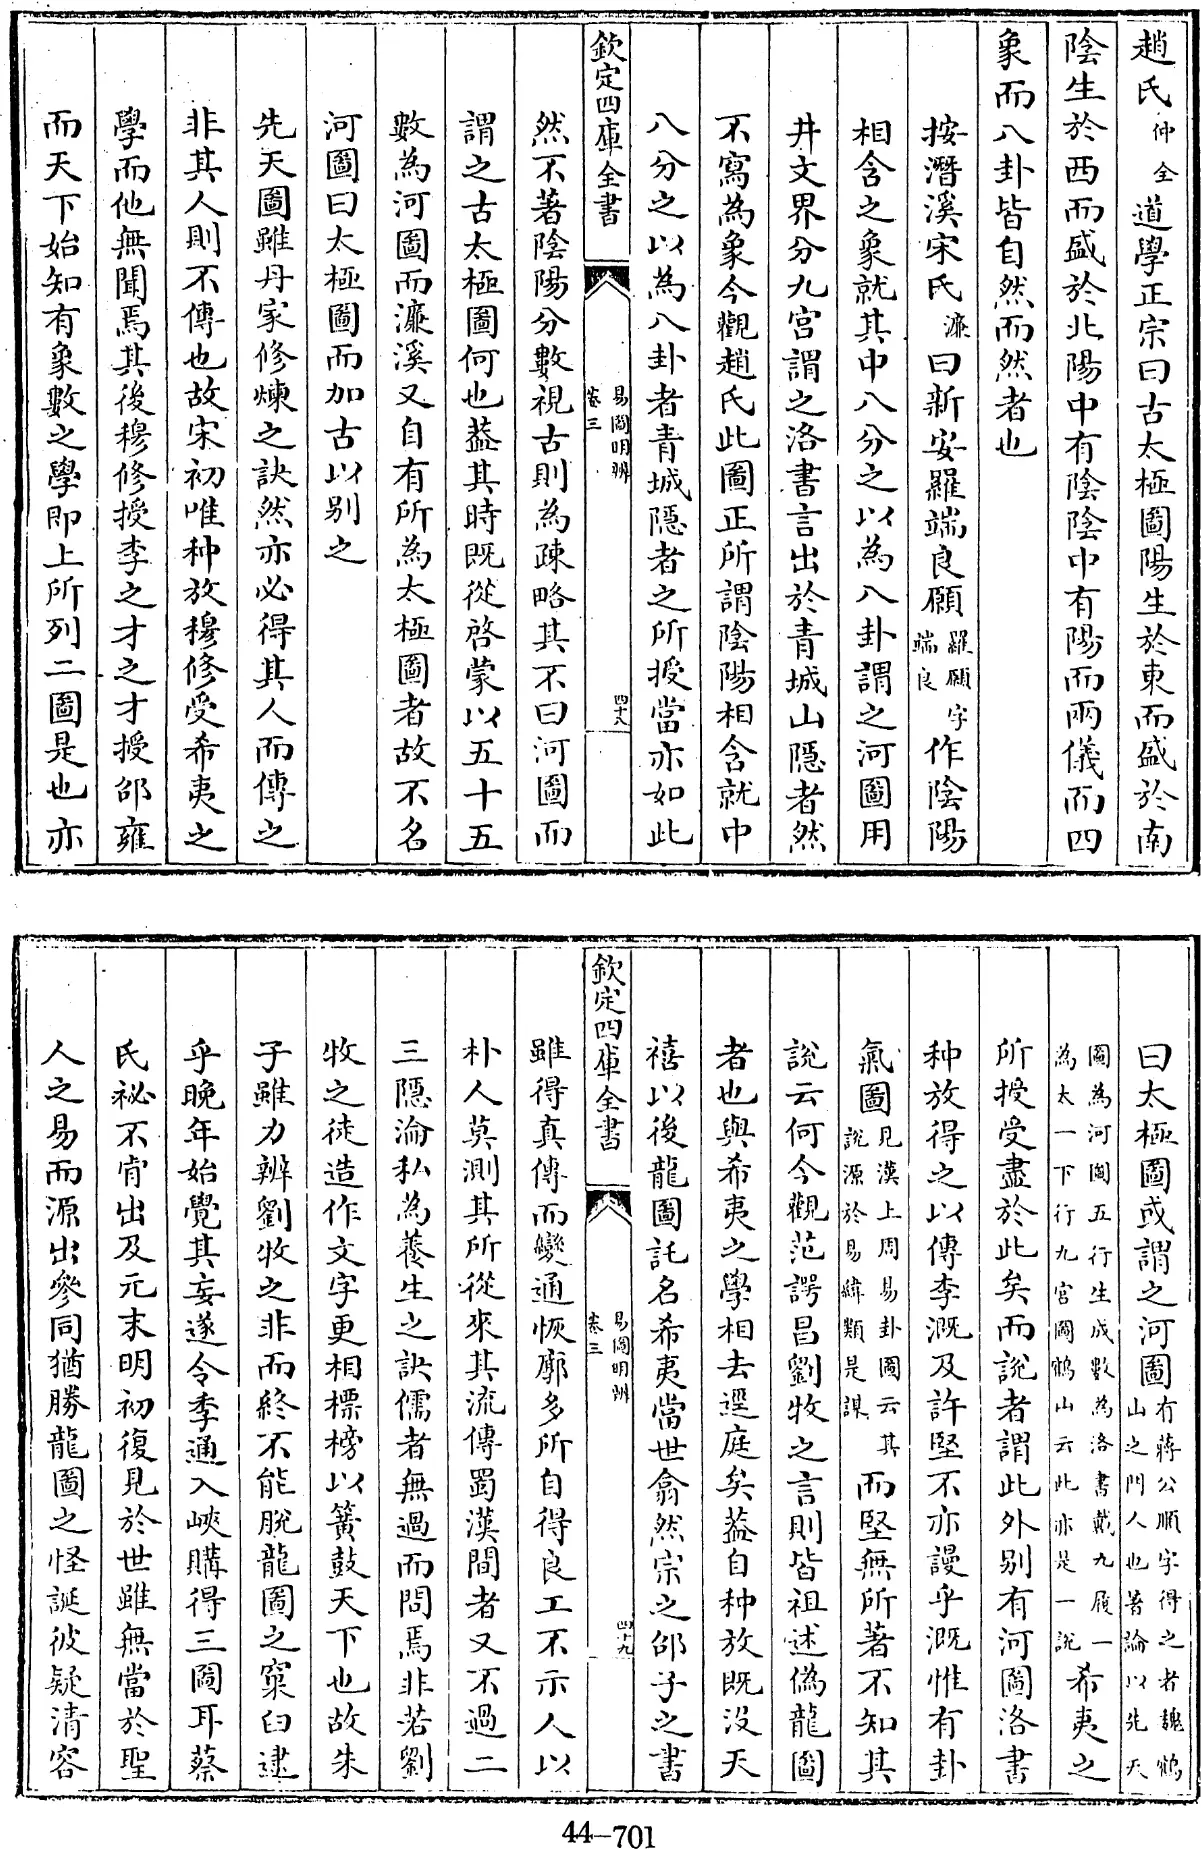 趙氏仲全道學正宗曰古太極圖陽生於東而盛於南
陰生於西而盛於北陽中有陰陰中有陽而兩儀而四
象而八卦皆自然而然者也
按潛溪宋氏濂曰新安羅端良願羅願字端良作陰陽
相含之象就其中八分之以為八卦謂之河圖用
井文界分九宮謂之洛書言出於青城山隱者然
不寫為象今觀趙氏此圖正所謂陰陽相含就中
八分之以為八卦者青城隱者之所授當亦如此
欽定四庫全書
易圖明辨
卷三
四十八
然不著陰陽分數視古則為疎略其不曰河圖而
謂之古太極圖何也葢其時既從啓蒙以五十五
數為河圖而濂溪又自有所為太極圖者故不名
河圖曰太極圖而加古以别之
先天圖雖丹家修煉之訣然亦必得其人而傳之
非其人則不傳也故宋初唯种放穆修受希夷之
學而他無聞焉其後穆修授李之才之才授邵雍
而天下始知有象數之學即上所列二圖是也亦
曰太極圖或謂之河圖有蔣公順字得之者魏鶴山之門人也著論以先天
圖為河圖五行生成數為洛書戴九履一為太一下行九宮圖鶴山云此亦是一說希夷之
所授受盡於此矣而說者謂此外别有河圖洛書
种放得之以傳李溉及許堅不亦謾乎溉惟有卦
氣圖見漢上周易卦圖云其說源於易緯類是謀而堅無所著不知其
說云何今觀范諤昌劉牧之言則皆祖述偽龍圖
者也與希夷之學相去逕庭矣葢自种放既沒天
禧以後龍圖託名希夷當世翕然宗之邵子之書
欽定四庫全書
易圖明辨
卷三
四十九
雖得真傳而變通恢廓多所自得良工不示人以
朴人莫測其所從來其流傳蜀漢間者又不過二
三隱淪私為養生之訣儒者無過而問焉非若劉
牧之徒造作文字更相標榜以簧鼓天下也故朱
子雖力辨劉牧之非而終不能脫龍圖之窠臼逮
乎晚年始覺其妄遂令季通入峽購得三圖耳蔡
氏祕不肯出及元末明初復見於世雖無當於聖
人之易而源出參同猶勝龍圖之怪誕彼疑清容
44-701